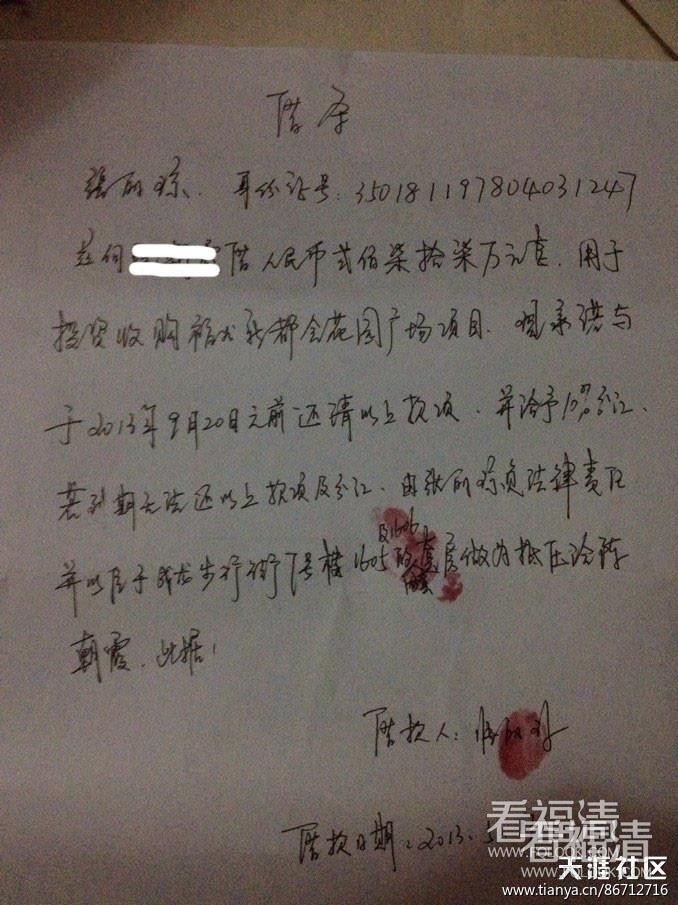 借条
张丽琼.身份证号:350181197804031247
兹向 借人民币贰佰柒拾柒万元整.用于
投资收购福龙新都会花园广场项目.现承诺与
于2013年9月20日之前还清以上款项.并给予10%分红.
若到期无法还以上款项及分红.由张丽琼负法律责任
并以位于成龙步行街7号楼1605及1606 套房做为抵压给陈
朝霞.此据!
借款人:张丽琼
借款日期:2013.5
看福清
WWW.FQLOOK.COM
看福清
WWW.FQLOOK.COM
天涯社区
www.tianya.cn/86712716